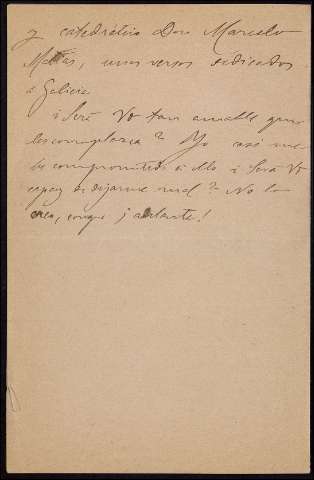 y catedrático Don Marcelo
Macías, unos versos dedicados
a Galicia.
¿Será Vd tan amable que
les complazca? Yo así me
he comprometido á ello ¿Será Vd
capaz de dejarme mal? No lo
creo, conque ¡adelante!